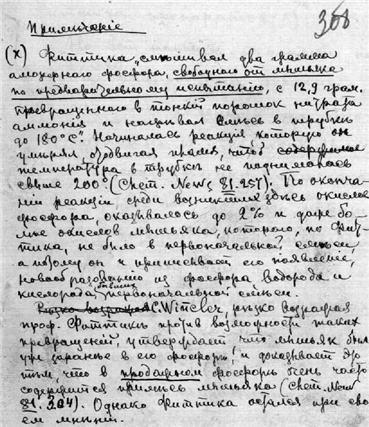 Примѣчаніе
368
(x) Фиттика „смѣшивалъ два грамма
аморфнаго фосфора, свободнаго отъ мышьяка
по предварительному испытанію, съ 12,9 грам.
превращеннаго въ тонкій порошокъ нитрата
аммонія и нагрѣвалъ смѣсь въ трубкѣ
до 180°С". Начиналась реакція которую онъ
умѣрялъ, отодвигая пламя, чтобъ
температура въ трубкѣ не поднималась
свыше 200° (Chem. News 81.257). По оконча-
ніи реакціи среди возникшихъ здѣсь окисловъ
фосфора, оказывалось до 2% и даже бо-
лѣе окисловъ мышьяка, котораго, по Фит-
тика, не было въ первоначальной смѣси
а потому онъ и приписываетъ его появленіе,
новообразованію изъ фосфора водорода и
кислорода бывшихъ первоначальной смѣси.
C. Winkler, рѣзко возражая
проф. Фиттикѣ противъ возможности такихъ
превращеній, утверждаетъ что мышьякъ былъ
уже заранѣе въ его фосфорѣ, и доказываетъ это
тѣмъ, что въ продажномъ фосфорѣ очень часто
содержится примѣсь мышьяка (Chem. New
81, 304). Однако Фиттика остался при сво-
емъ мнѣніи.